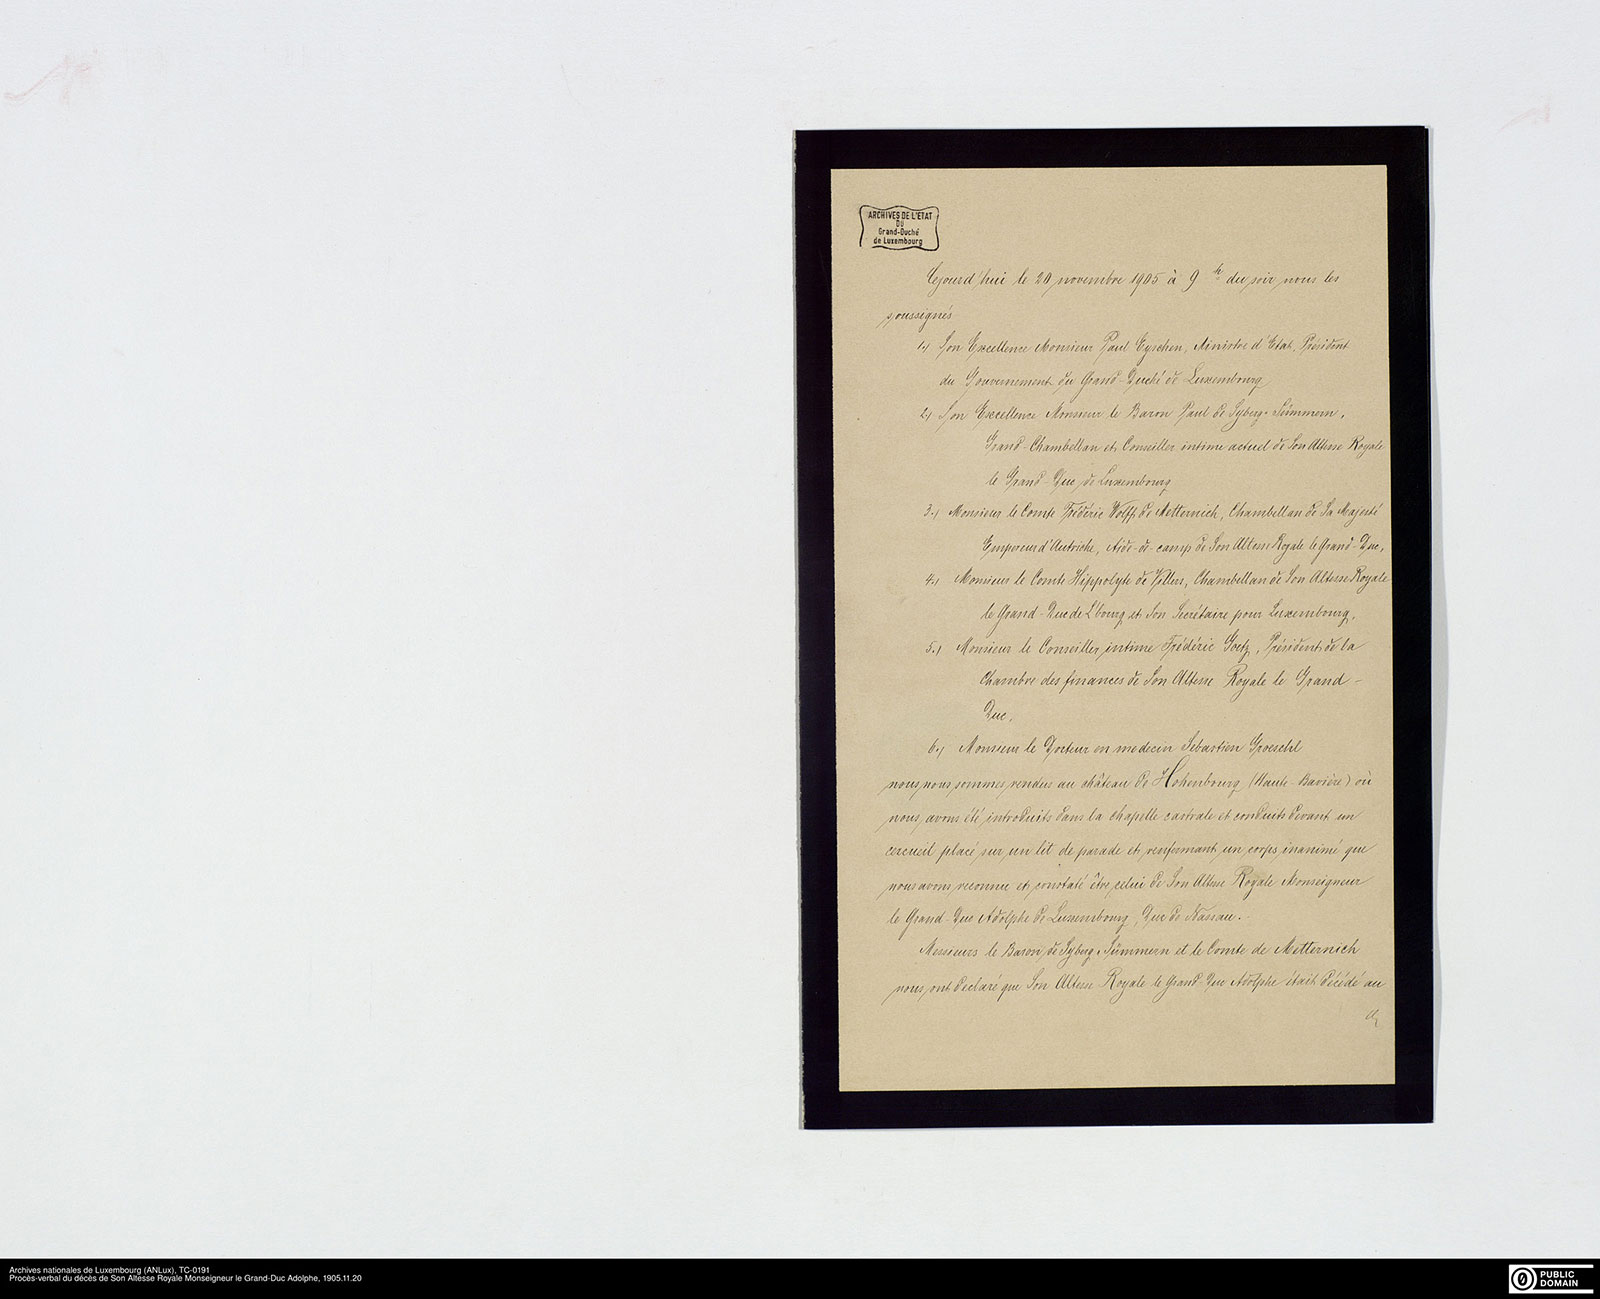 ARCHIVES DE L'ETAT
DU
Grand-Duché
de Luxembourg
Cejourd'hui le 20 novembre 1905 à 9 h du soir nous les
soussignés
1.) Son Excellence Monsieur Paul Eyschen, Ministre d'Etat, Président
du Gouvernement du Grand-Duché de Luxembourg
2.) Son Excellence Monsieur le Baron Paul de Syberg-Sümmern,
Grand-Chambellan et Conseiller intime actuel de Son Altesse Royale
le Grand-Duc de Luxembourg
3.) Monsieur le Comte Frédéric Wolff de Metternich, Chambellan de Sa Majesté
Empereur d'Autriche, Aide-de-camp de Son Altesse Royale le Grand-Duc,
4.) Monsieur le Comte Hippolyte de Villers, Chambellan de Son Altesse Royale
le Grand-Duc de L'bourg et Son Secrétaire pour Luxembourg,
5.) Monsieur le Conseiller intime Frédéric Goetz, Président de la
Chambre des finances de Son Altesse Royale le Grand-
Duc,
6.) Monsieur le Docteur en medecin Sebastien
nous nous sommes rendus au château de Hohenbourg (Haute-Bavière) où
nous avons été introduits dans la chapelle castrale et conduits devant un
cercueil placé sur un lit de parade et renfermant un corps inanimé que
nous avons reconnu et constaté être celui de Son Altesse Royale Monseigneur
le Grand-Duc Adolphe de Luxembourg, Duc de Nassau.-
Messieurs le Baron de Syberg-Sümmern et le Comte de Metternich
nous ont déclaré que Son Altesse Royale le Grand-Duc Adolphe était décédé au
Archives nationales de Luxembourg (ANLux), TC-0191
Procès-verbal du décès de Son Altesse Royale Monseigneur le Grand-Duc Adolphe, 1905.11.20
PUBLIC
DOMAIN